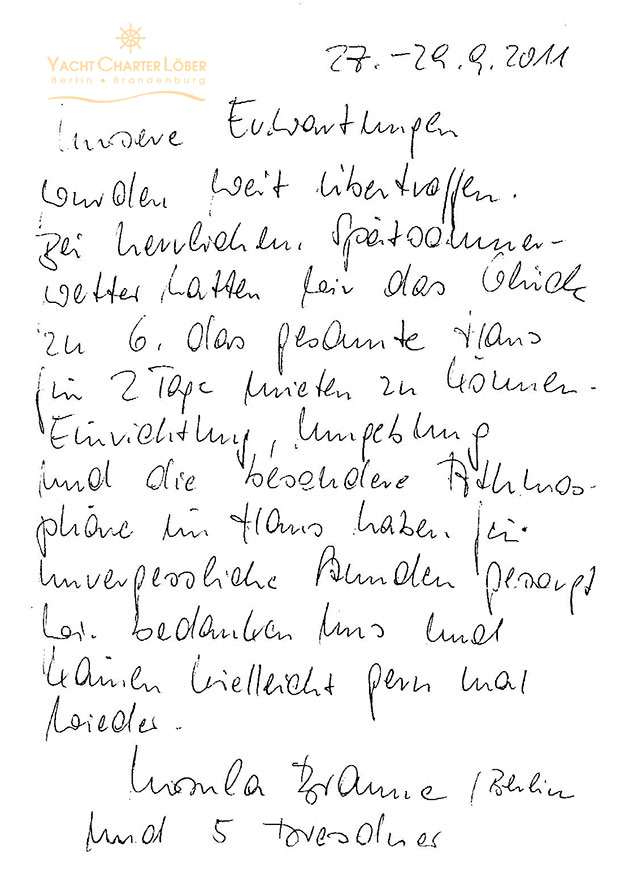 YACHT CHARTER LÖBER
Berlin • Brandenburg
27.-29.9.2011
Unsere Erwartungen
wurden weit übertroffen.
Bei herrlichem Spätsommer-
wetter hatten wir das Glück
zu 6. das gesamte Haus
für 2 Tage mieten zu können.
Einrichtung, Umgebung
und die besondere Athmos-
phäre im Haus haben für
unvergessliche Stunden gesorgt
Wir bedanken uns und
kämen vielleicht gern mal
wieder.
Ursula Braune / Berlin
und 5 Dresdner